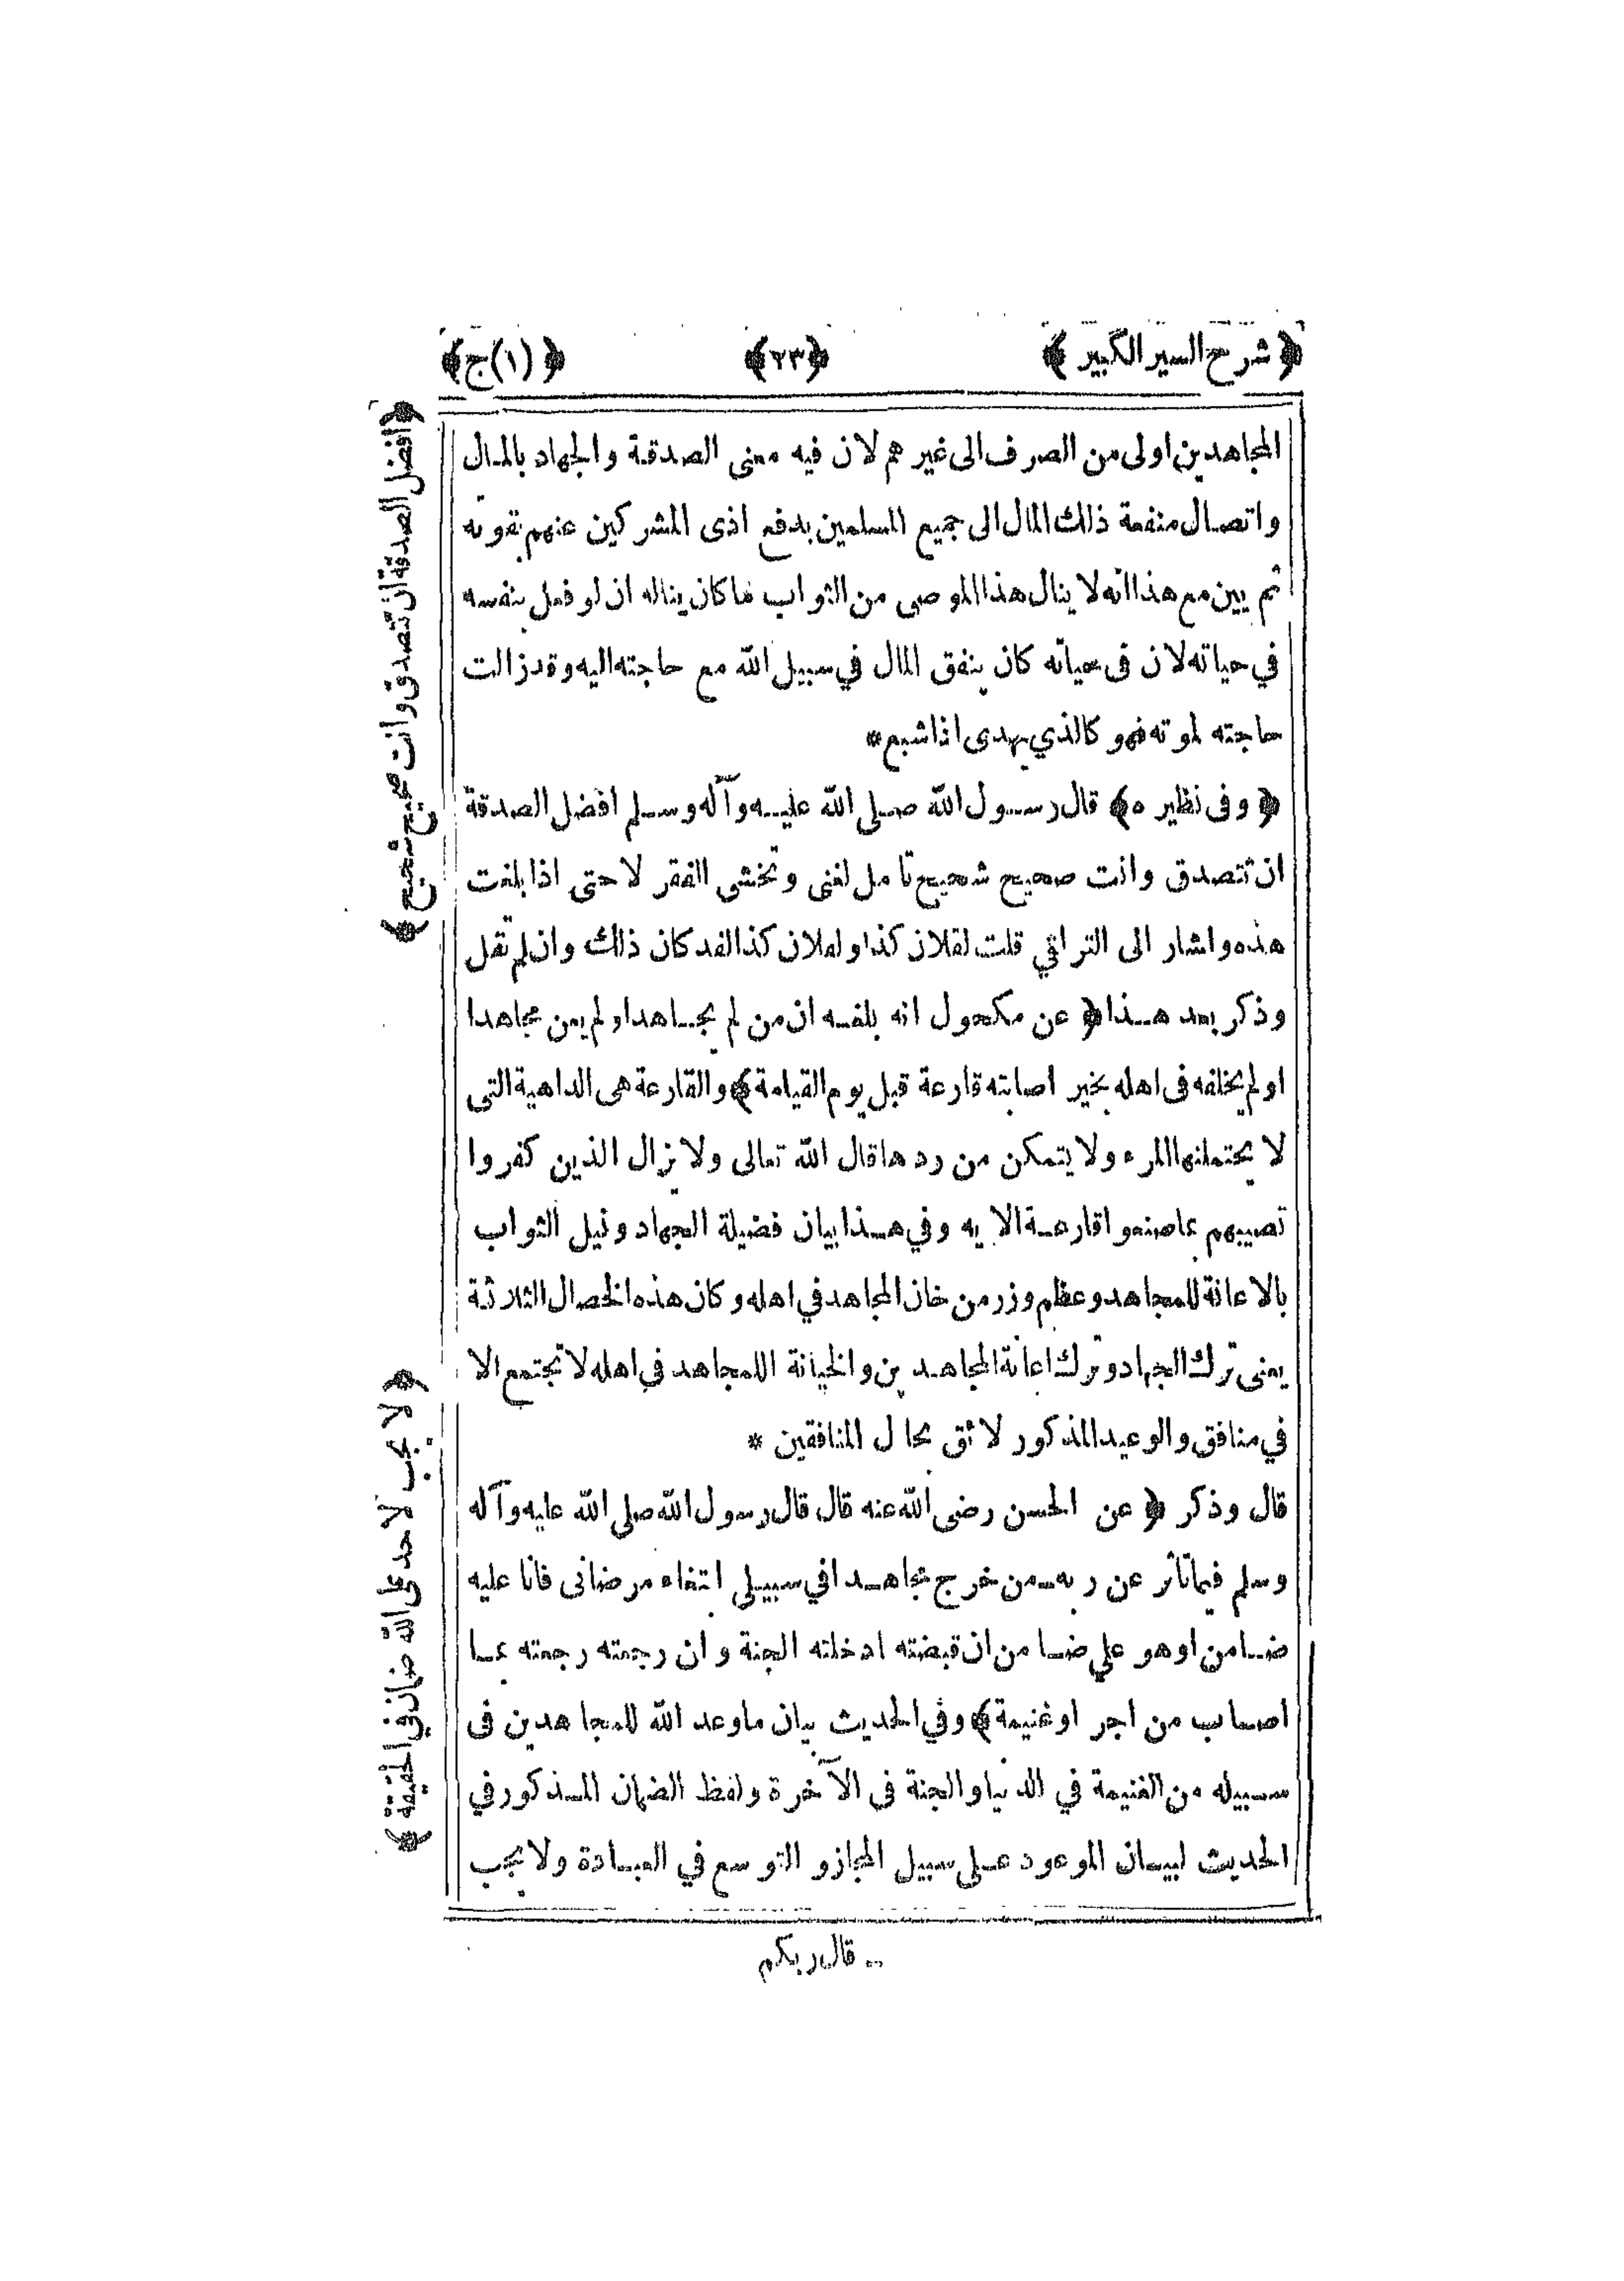 ﴿ شرح السير الكبير ﴾ ﴿٢٣﴾ ﴿ (١) ج ﴾
المجاهدين اولى من الصرف الى غيرهم لان فيه معنى الصدقة والجهاد بالمال
واتصال منفعة ذلك المال الى جميع المسلمين بدفع اذى المشركين عنهم بقوته
ثم يبين مع هذا انه لا ينال هذا الموصى من الثواب ما كان يناله ان لو فعل بنفسه
في حياته لان فى حياته كان ينفق المال في سبيل الله مع حاجته اليه وقد زالت
حاجته لموته فهو كالذي يهدى اذا شبع*
﴿ وفى نظيره ﴾ قال رسول الله صلى الله عليه وآله وسلم افضل الصدقة
ان تتصدق وانت صحيح شحيح تأمل لغنى وتخشى الفقر لا حتى اذا بلغت
هذه واشار الى التراقي قلت لفلان كذا ولفلان كذا لقد كان ذلك وان لم تقل
وذكر بعد هذا ﴿ عن مكحول انه بلغه ان من لم يجاهد او لم يعن مجاهدا
او لم يخلفه فى اهله بخير اصابته قارعة قبل يوم القيامة ﴾ والقارعة هى الداهية التى
لا يحتملنها المرء ولا يتمكن من ردها قال الله تعالى ولا يزال الذين كفروا
تصيبهم بما صنعوا قارعة الاية وفي هذا بيان فضيلة الجهاد ونيل الثواب
بالاعانة للمجاهد وعظم وزر من خان المجاهد في اهله وكان هذه الخصال الثلاثة
يعنى ترك الجهاد وترك اعانة المجاهدين والخيانة اللمجاهد في اهله لا تجتمع الا
في منافق والوعيد المذكور لائق بحال المنافقين *
قال وذكر ﴿ عن الحسن رضى الله عنه قال قال رسول الله صلى الله عليه وآله
وسلم فيما تأثر عن ربه من خرج مجاهدا في سبيلى ابتغاء مرضاتى فانا عليه
ضامن او هو علي ضامن ان قبضته ادخلته الجنة وان رجعته رجعته بما
اصاب من اجر او غنيمة ﴾ وفي الحديث بيان ما وعد الله للمجاهدين فى
سبيله من الغنيمة في الدنيا والجنة فى الآخرة ولفظ الضمان المذكور في
الحديث لبيان الموعود على سبيل المجاز والتوسع في العبادة ولا يجب
قال ربكم
﴿ افضل الصدقة ان تتصدق وانت صحيح شحيح ﴾
﴿ لا يجب لاحد على الله ضمان في الحقيقة ﴾